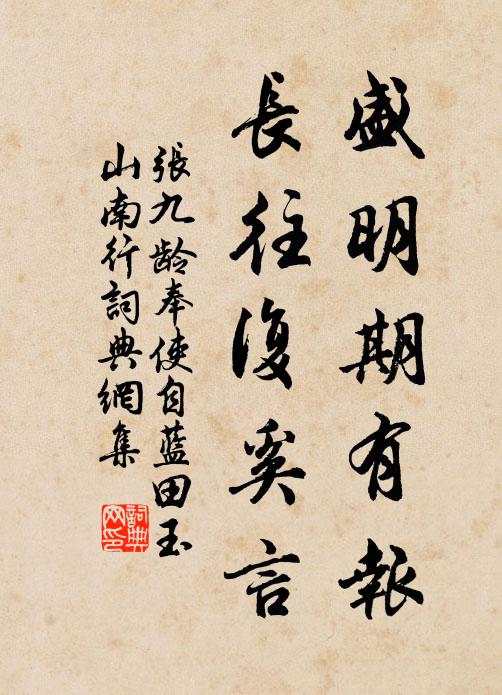 盛明期有報
長往復奚言
張九齡奉使自藍田玉
山南行詞典網集
詞典
网印